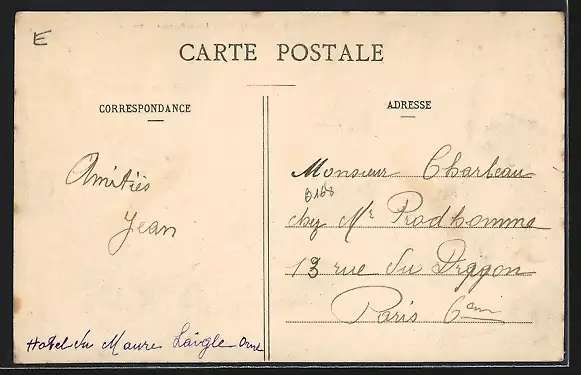 E
CARTE POSTALE
CORRESPONDANCE
Amitiés
Jean
Hotel du Maure Laigle Orne
ADRESSE
Monsieur Charleau
chez Mr Prodhomme
13 rue du Dragon
Paris 6eme